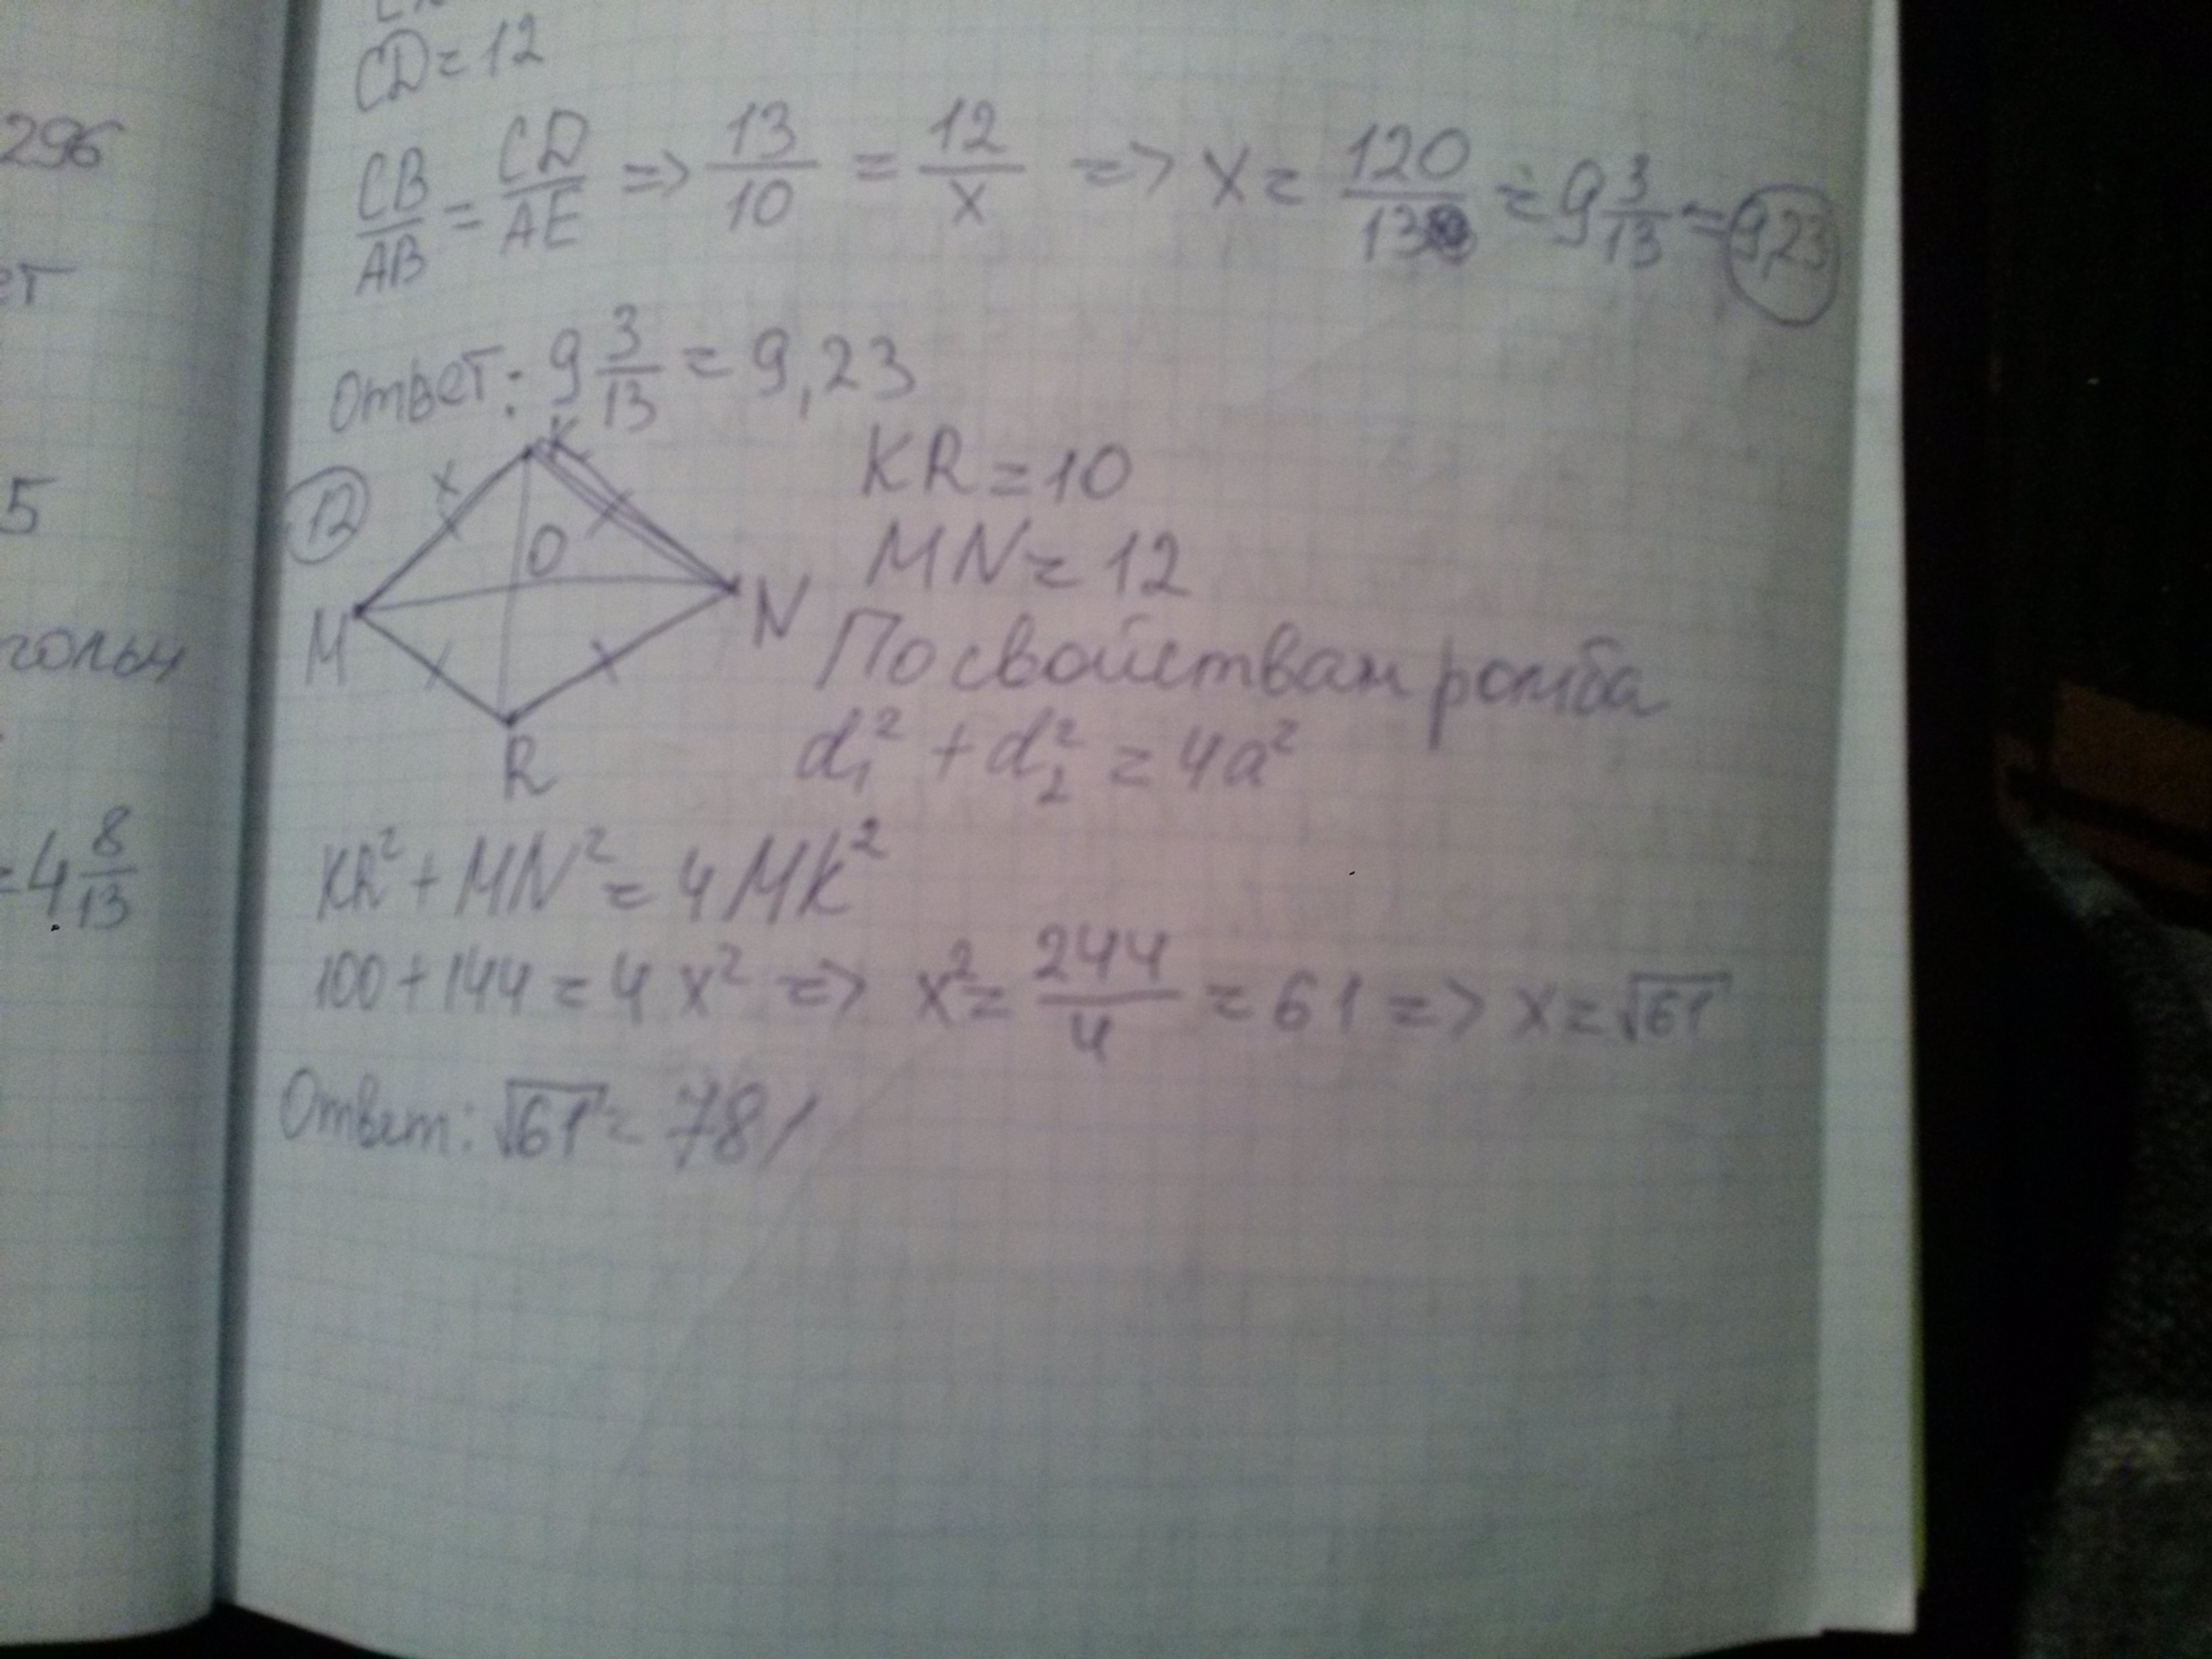 296
ет
5
гольн
=4 8/13
CD=12
CB/AB = CD/AE => 13/10 = 12/x => x = 120/13 = 9 3/13 = 9,23
Ответ: 9 3/13 = 9,23
12
K
O
M
N
R
KR=10
MN=12
По свойствам ромба
d₁² + d₂² = 4a²
KR² + MN² = 4MK²
100+144=4x² => x² = 244/4 = 61 => x=√61
Ответ: √61 = 781